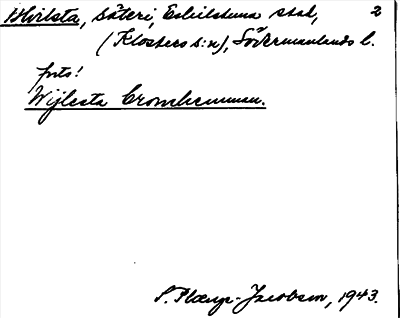 Hvilsta, säteri, Eskilstuna stad, 2
(Klosters s:n), Södermanlands l.
forts!
Wijlesta Cronohemman.
S. Plænge-Jacobson, 1943.